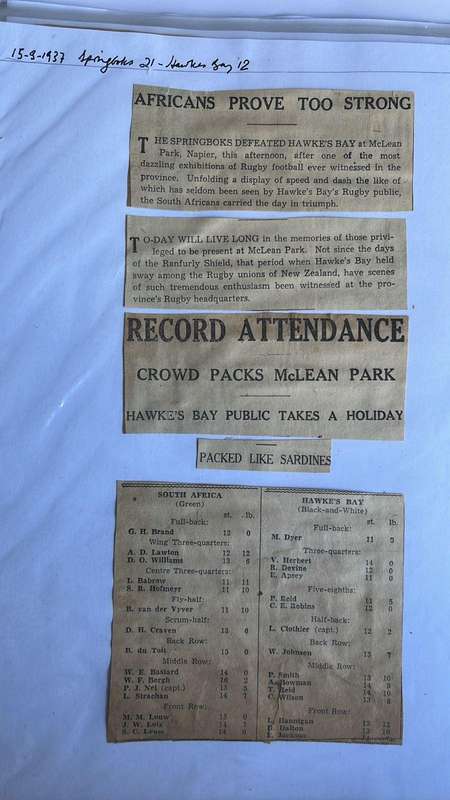 15-9-1937 Springboks 21 - Hawkes Bay 12
AFRICANS PROVE TOO STRONG
THE SPRINGBOKS DEFEATED HAWKE'S BAY at McLean
Park, Napier, this afternoon, after one of the most
dazzling exhibitions of Rugby football ever witnessed in the
province. Unfolding a display of speed and dash the like of
which has seldom been seen by Hawke's Bay's Rugby public,
the South Africans carried the day in triumph.
TO-DAY WILL LIVE LONG in the memories of those privi-
leged to be present at McLean Park. Not since the days
of the Ranfurly Shield, that period when Hawke's Bay held
sway among the Rugby unions of New Zealand, have scenes
of such tremendous enthusiasm been witnessed at the pro-
vince's Rugby headquarters.
RECORD ATTENDANCE
CROWD PACKS McLEAN PARK
HAWKE'S BAY PUBLIC TAKES A HOLIDAY
PACKED LIKE SARDINES
SOUTH AFRICA
(Green)
st. lb.
Full-back:
G. H. Brand 12 0
Wing Three-quarters:
A. D. Lawton 12 12
D. O. Williams 13 6
Centre Three-quarters:
L. Babrow 11 11
S. R. Hofmeyr 11 10
Fly-half:
B. van der Vyver 11 10
Scrum-half:
D. H. Craven 13 6
Back Row:
B. du Toit 15 0
Middle Row:
W. E. Bastard 14 0
W. F. Bergh 16 2
P. J. Nel (capt.) 15 5
L. Strachan 14 7
Front Row:
M. M. Louw 0
J. W. Lotz 7
S. C. Louw 14 0
HAWKE'S BAY
(Black-and-White)
st. lb.
Full-back:
M. Dyer 11
Three-quarters:
V. Herbert 14 0
R. Devine 12 0
E. Apsey 11 0
Five-eighths:
P. Reid 11 5
C. E. Robins 12 0
Half-back:
L. Clothier (capt.) 12 2
Back Row:
W. Johnsen 13 7
Middle Row:
P. Smith 13 10
A. Bowman 14
T. Reid 14 10
C. Wilson 13
Front Row:
L. Hannigan 13 12
D. Dalton 13 10
E. Jackson